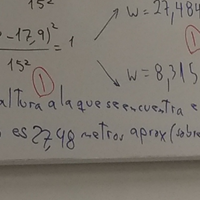 15²
w = 27,484
- 17,9)² = 1
15²
1
1
w = 8,315
altura a la que se encuentra e
es 27,48 metros aprox (sobre